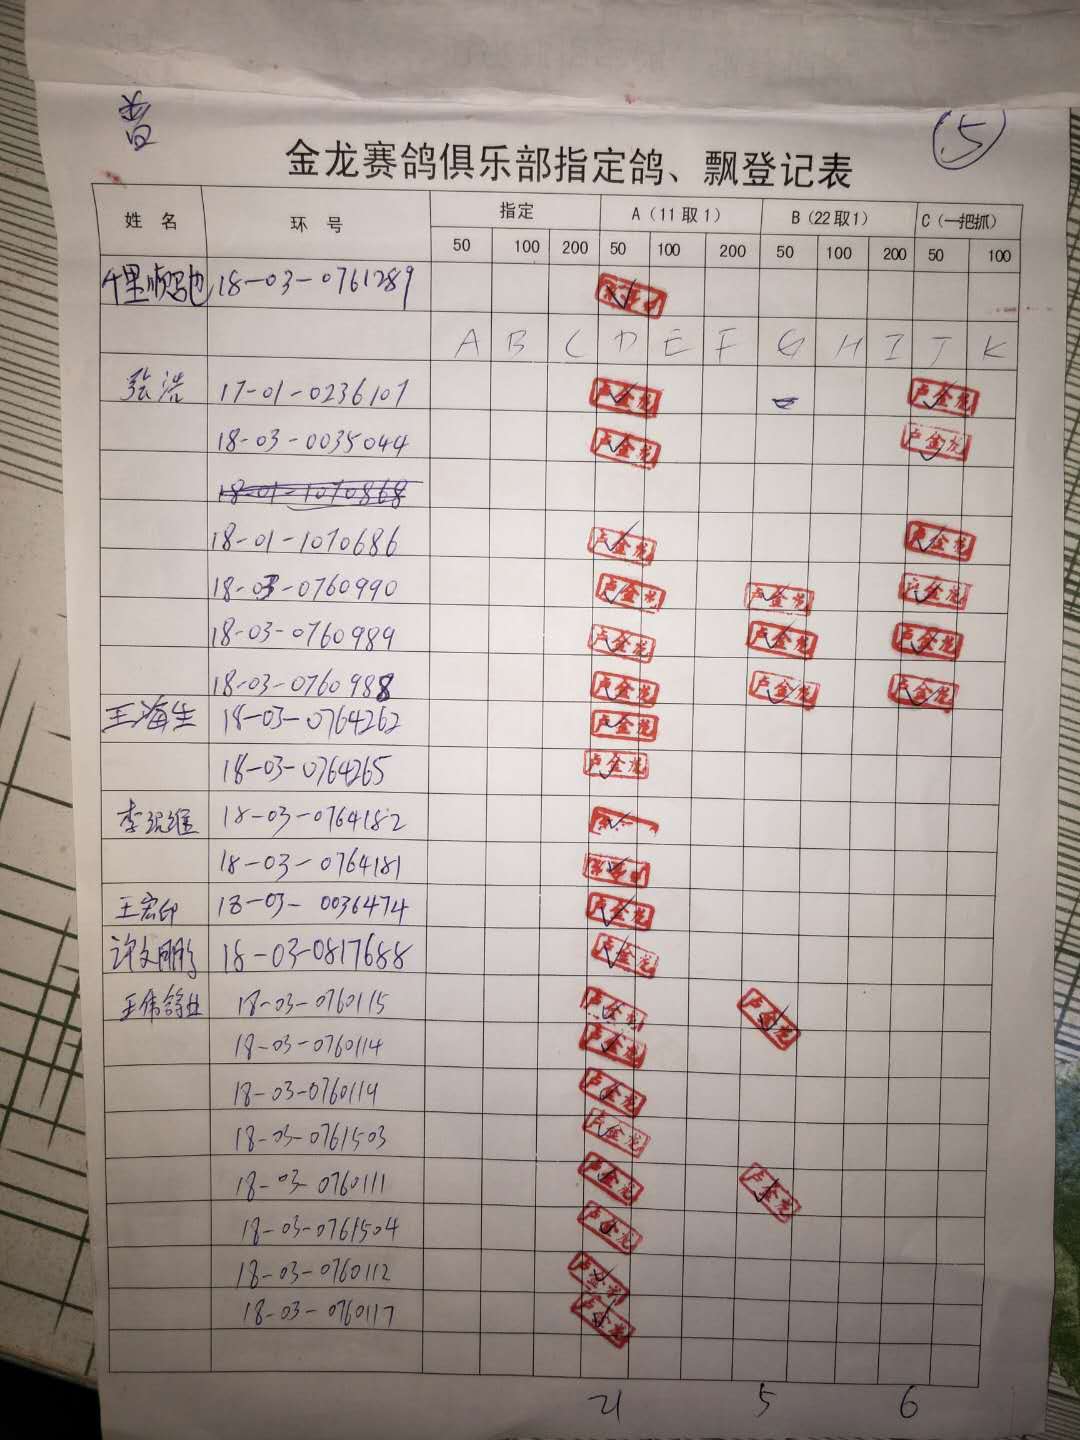 普 ⑤
金龙赛鸽俱乐部指定鸽、飘登记表
姓 名 环 号 指定 A(11取1) B(22取1) C(一把抓)
50 100 200 50 100 200 50 100 200 50 100
千里顺驰 18-03-0761289
A B C D E F G H I J K
张浩 17-01-0236107 卢金龙 卢金龙
18-03-0035044 卢金龙 卢金龙
18-01-1070868
18-01-1070686 卢金龙 卢金龙
18-03-0760990 卢金龙 卢金龙 卢金龙
18-03-0760989 卢金龙 卢金龙 卢金龙
18-03-0760988 卢金龙 卢金龙 卢金龙
王海生 18-03-0764262 卢金龙
18-03-0764265 卢金龙
李 18-03-0764182
18-03-0764181
王宏印 18-03-0036474 卢金龙
许文鹏 18-03-0817688 卢金龙
王伟鸽业 18-03-0760115 卢金龙 卢金龙
18-03-0760114 卢金龙
18-03-0760119 卢金龙
18-03-0761503 卢金龙
18-03-0760111 卢金龙 卢金龙
18-03-0761504 卢金龙
18-03-0760112 卢金龙
18-03-0760117 卢金龙
21 5 6